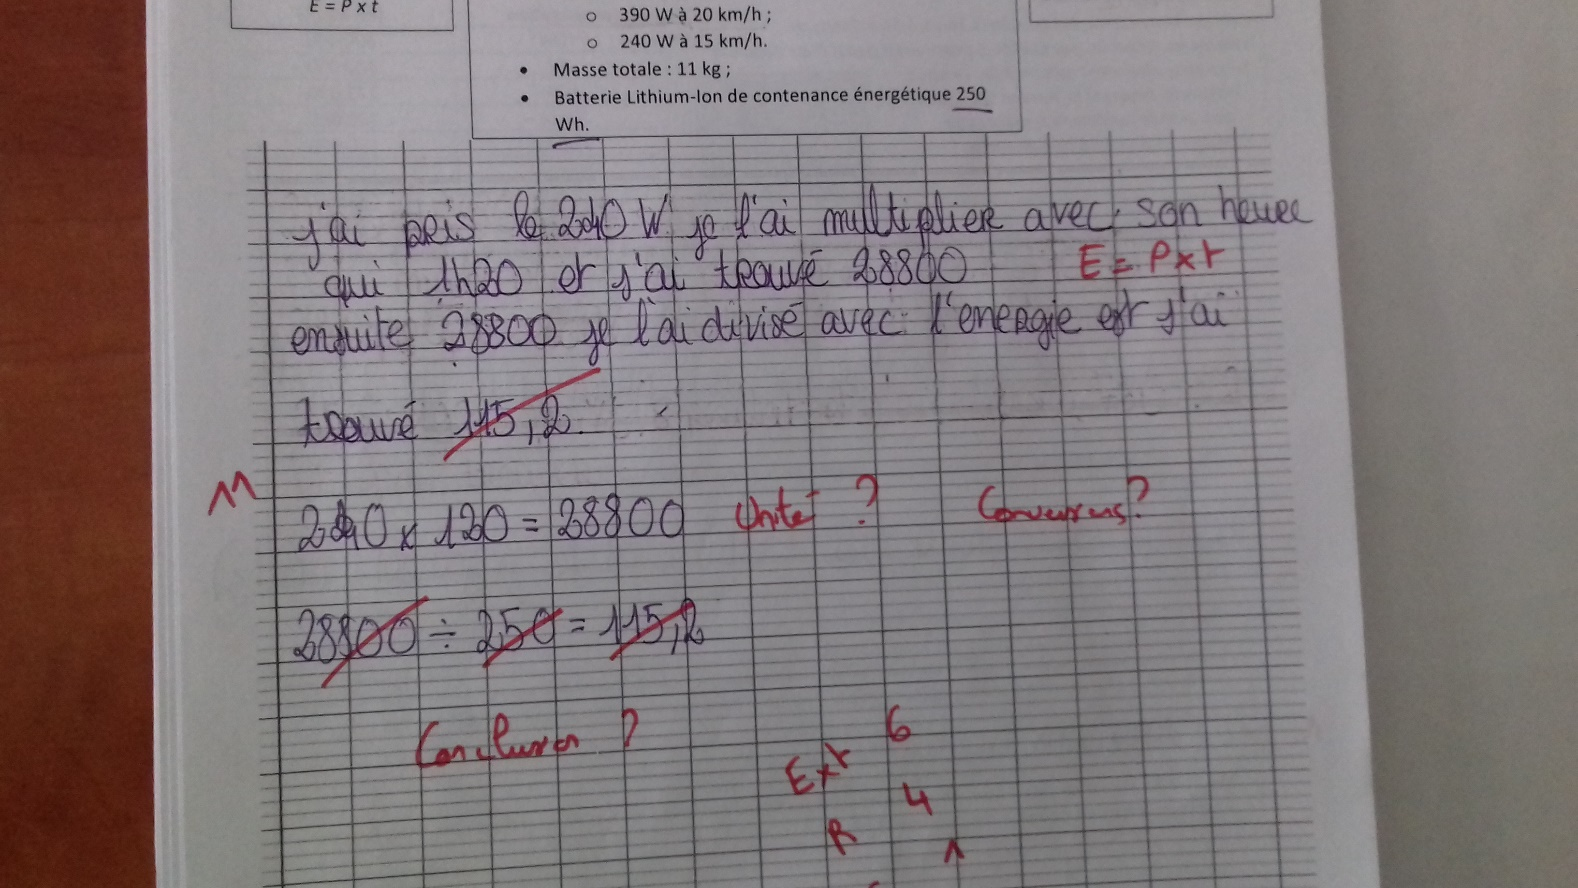 E = P x t
o 390 W à 20 km/h ;
o 240 W à 15 km/h.
• Masse totale : 11 kg ;
• Batterie Lithium-Ion de contenance énergétique 250
Wh.
j'ai pris le 240 W je l'ai multiplier avec son heure
qui 1h20 et j'ai trouvé 28800 E = P x t
ensuite 28800 je l'ai divisé avec l'energie et j'ai
trouvé 115,2.
240 x 120 = 28800 Unités ? Conversions ?
28800 ÷ 250 = 115,2
Conclusion ?
Ext 6
R 4
1